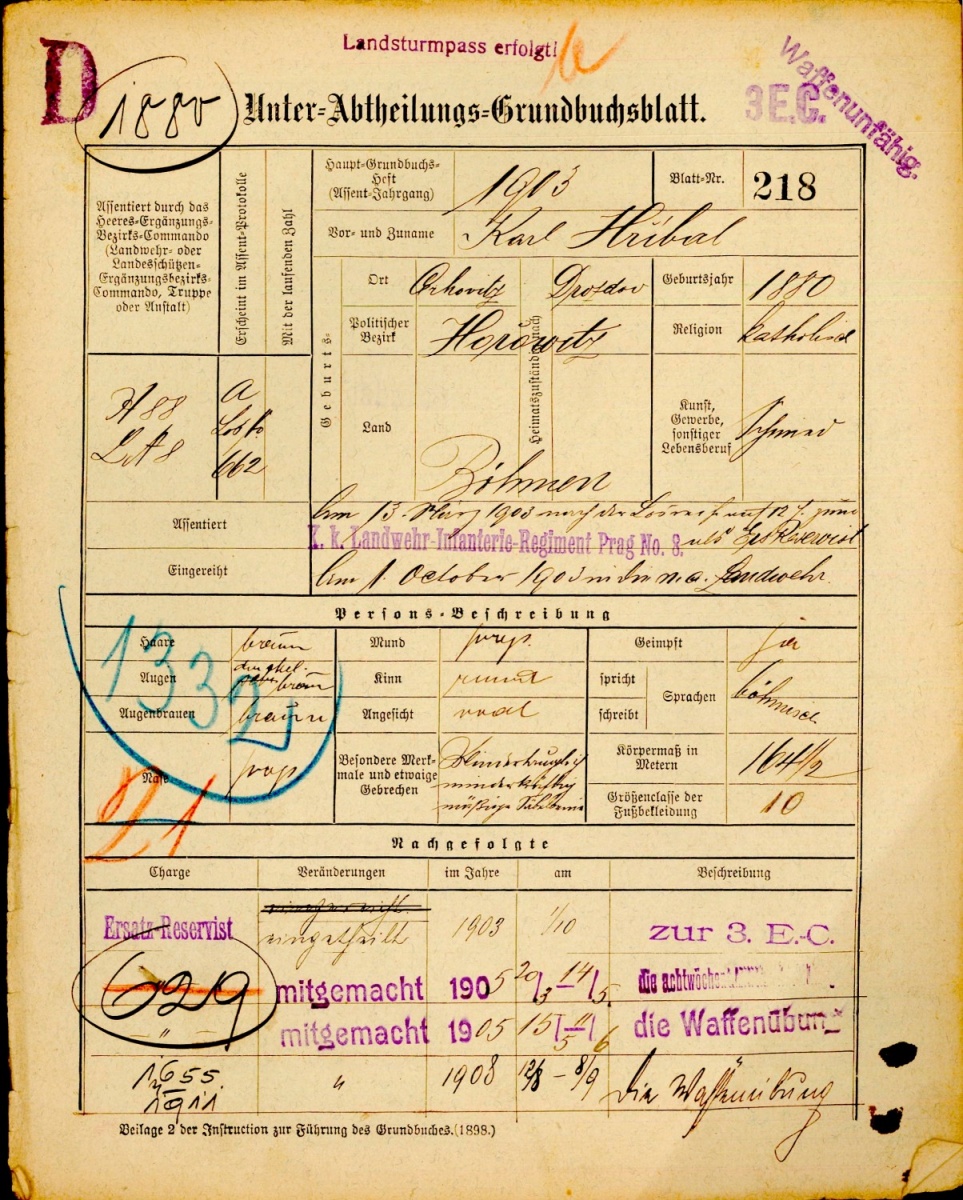 Landsturmpass erfolgt!
D
1880
Waffenunfähig.
3 E.C.
Unter-Abtheilungs-Grundbuchsblatt.
Assentiert durch das
Heeres-Ergänzungs-
Bezirks-Commando
(Landwehr- oder
Landesschützen-
Ergänzungsbezirks-
Commando, Truppe
oder Anstalt)
Erscheint im Assent-Protokolle
Mit der laufenden Zahl
Haupt-Grundbuchs-
Heft
(Assent-Jahrgang)
1903
Blatt-Nr.
218
Vor- und Zuname
Karl Hříbal
Geburts-
Ort
Drosdov
Geburtsjahr
1880
Politischer
Bezirk
Hořowitz
Heimatszuständig nach
Religion
katholisch
Land
Böhmen
Kunst,
Gewerbe,
sonstiger
Lebensberuf
Schmied
H 88
A
662
Assentiert
Am 13. März 1903 nach der
K. k. Landwehr-Infanterie-Regiment Prag No. 8.
als Ers Reservist
Eingereiht
Am 1. October 1903 in die n. a. Landwehr.
Persons-Beschreibung
1332
Haare
braun
Mund
prop.
Geimpft
ja
Augen
braun
Kinn
rund
spricht
schreibt
Sprachen
böhmisch
Augenbrauen
braun
Angesicht
oval
Nase
prop
21
Besondere Merk-
male und etwaige
Gebrechen
minderkräftig
Körpermaß in
Metern
164 1/2
Größenclasse der
Fußbekleidung
10
Nachgefolgte
Charge
Veränderungen
im Jahre
am
Beschreibung
Ersatz-Reservist
eingetheilt
1903
1/10
zur 3. E.-C.
629
mitgemacht
1905
20/3 – 14/5.
die achtwöchentl
"
mitgemacht
1905
die Waffenübung
1655.
1911
"
1908
12/8 – 8/9
die Waffenübung
Beilage 2 der Instruction zur Führung des Grundbuches. (1898.)